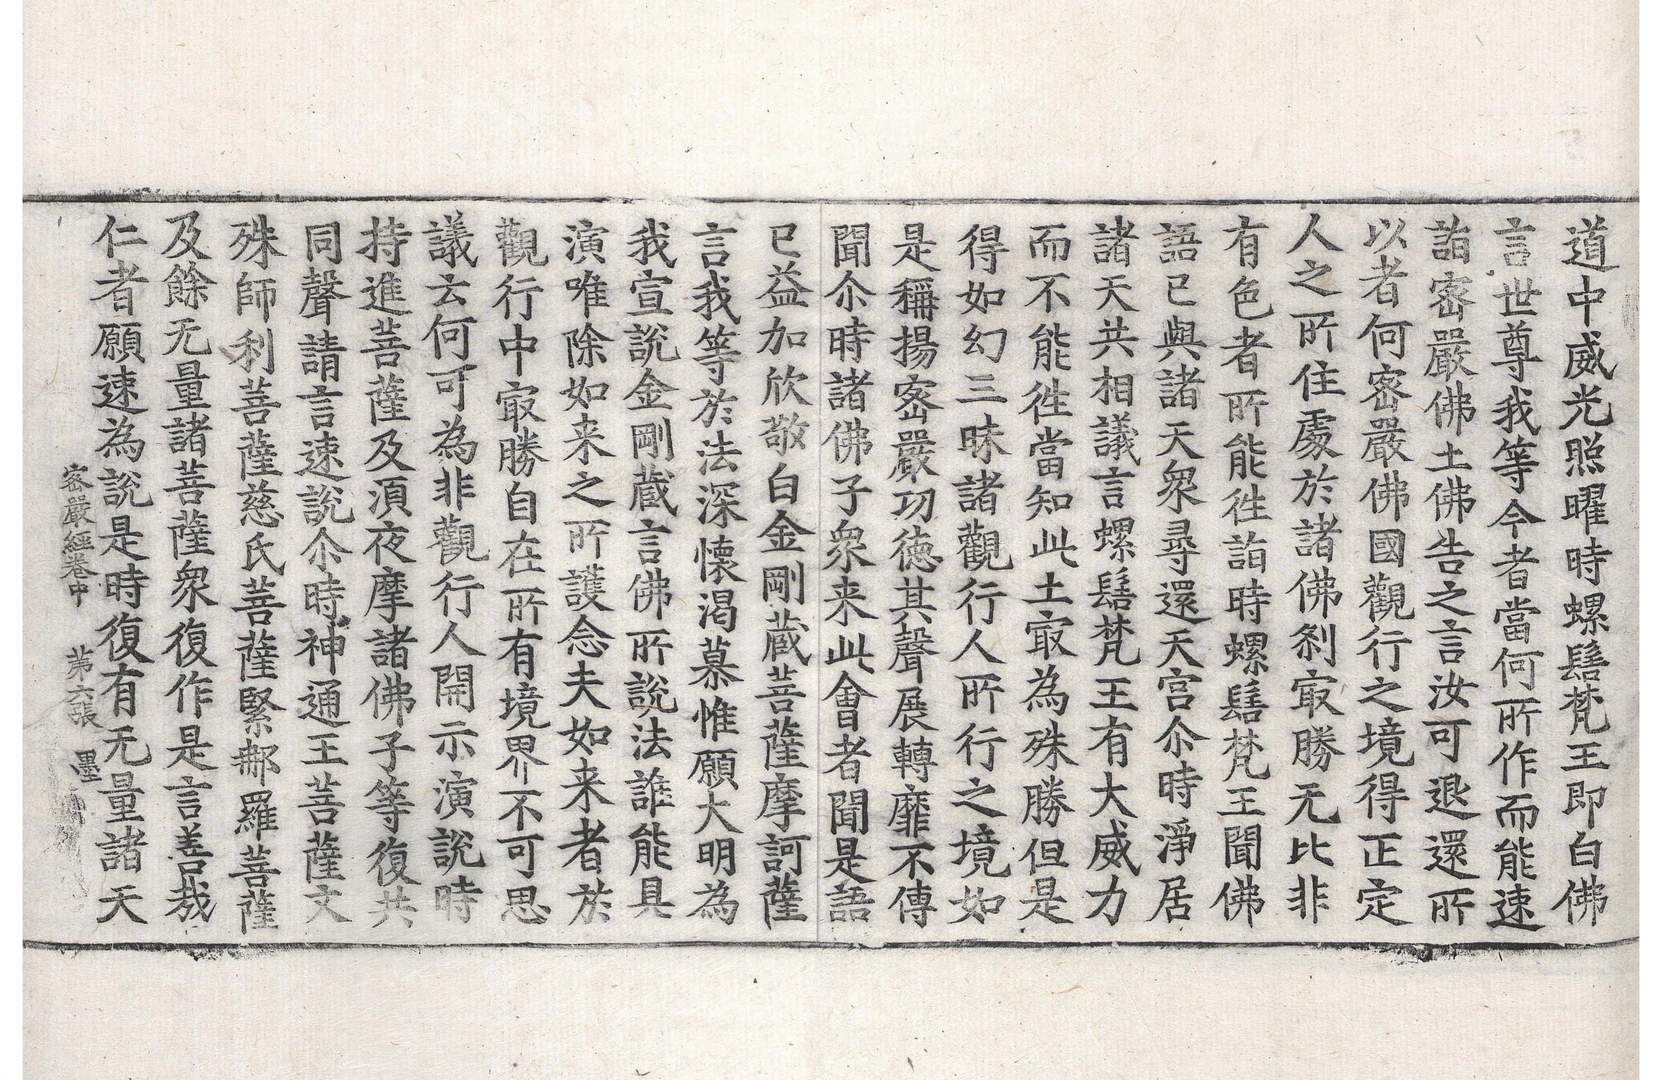 道中威光照曜時螺髻梵王即白佛
言世尊我等今者當何所作而能速
詣密嚴佛土佛告之言汝可退還所
以者何密嚴佛國觀行之境得正定
人之所住處於諸佛剎寂勝无比非
有色者所能徃詣時螺髻梵王聞佛
語已與諸天衆尋還天宫尒時淨居
諸天共相議言螺髻梵王有大威力
而不能徃當知此土寂為殊勝但是
得如幻三昧諸觀行人所行之境如
是稱揚密嚴功德其聲展轉靡不傳
聞尒時諸佛子衆来此會者聞是語
已益加欣敬白金剛蔵菩薩摩訶薩
言我等於法深懷渴慕惟願大明為
我宣說金剛蔵言佛所說法誰能具
演唯除如来之所護念夫如来者於
觀行中寂勝自在所有境界不可思
議云何可為非觀行人開示演說時
持進菩薩及湏夜摩諸佛子等復共
同聲請言速說尒時神通王菩薩文
殊師利菩薩慈氏菩薩緊郍羅菩薩
及餘无量諸菩薩衆復作是言善哉
仁者願速為說是時復有无量諸天
密嚴經卷中 苐六張 墨